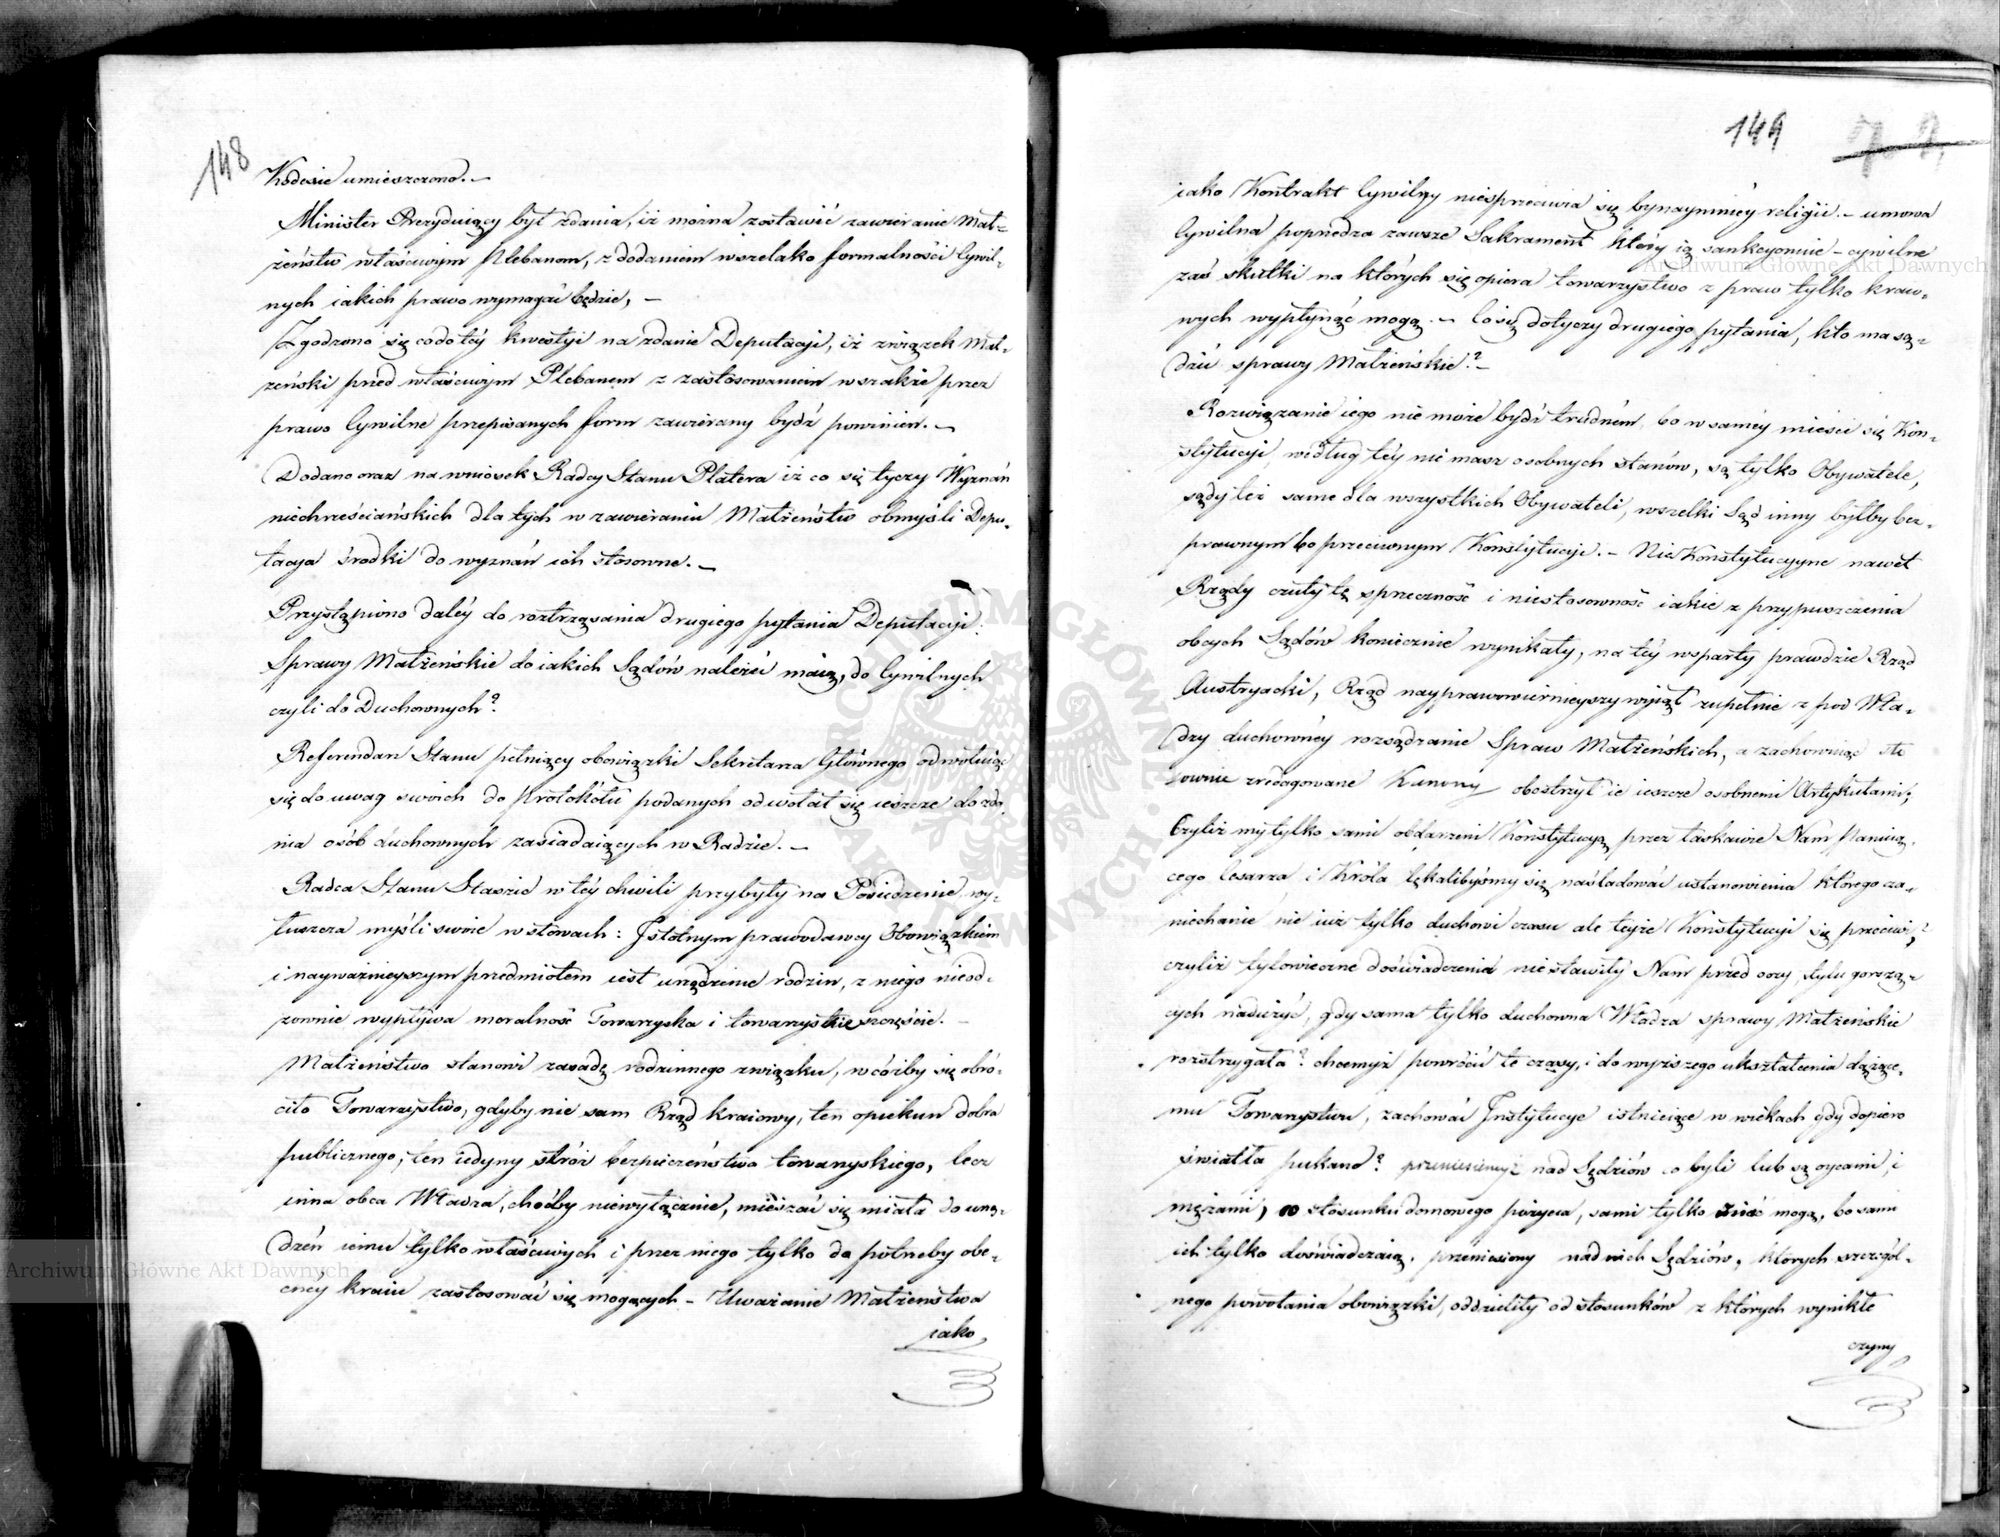 148
Kodexie umieszczono. –
Minister Prezyduiący był zdania, iż można zostawić zawieranie Mał-
żeństw właściwym Plebanom, z dodaniem wszelako formalności Cywil-
nych iakich prawo wymagać będzie, –
Zgodzono się co do téy kwestyi na zdanie Deputacji, iż związek Mał-
żeński przed właściwym Plebanem z zastosowaniem wszakże przez
prawo Cywilne przepisanych form zawierany bydź powinien. –
Dodano oraz na wniosek Radcy Stanu Platera iż co się tyczy Wyznań
niechrześciańskich dla tych w zawieraniu Małżeństw obmyśli Depu-
tacya środki do wyznań ich stosowne. –
Przystąpiono daléy do roztrząsania drugiego pytania Deputacyi:
Sprawy Małżeńskie do iakich Sądów należeć maią, do Cywilnych
czyli do Duchownych?
Referendarz Stanu pełniący obowiązki Sekretarza Głównego odwołuiąc
się do uwag swoich do Protokółu podanych odwołał się ieszcze do zda-
nia osób duchownych zasiadaiących w Radzie. –
Radca Stanu Staszic w téy chwili przybyły na Posiedzenie wy-
łuszcza myśli swoie w słowach: Istotnym prawodawcy Obowiązkiem
i nayważnieyszym przedmiotem iest urządzenie rodzin, z niego nieod-
zownie wypływa moralność Towarzyska i towarzyskie szczęście. –
Małżeństwo stanowi zasadę rodzinnego związku, w cóżby się obró-
ciło Towarzystwo, gdyby nie sam Rząd kraiowy, ten opiekun dobra
publicznego, ten iedyny stróż bezpieczeństwa towarzyskiego, lecz
inna obca Władza, choćby niewyłącznie, mieszać się miała do urzą-
dzeń iemu tylko właściwych i przez niego tylko do potrzeby obe-
cnéy kraiu zastosować się mogących – Uważanie Małżeństwa
iako
149
72
iako Kontrakt Cywilny niesprzeciwia się bynaymniéy religii. – umowa
Cywilna poprzedza zawsze Sakrament który ią sankcyonuie – cywilne
zaś skutki na których się opiera towarzystwo z praw tylko kraio-
wych wypłynąć mogą. – Co się dotyczy drugiego pytania, kto ma są-
dzić sprawy Małżeńskie? –
Rozwiązanie iego nie może bydź trudném, bo w saméy mieści się Kon-
stytucyi, według téy nie masz osobnych stanów, są tylko Obywatele,
sądy też same dla wszystkich Obywateli, wszelki Sąd inny byłby bez-
prawnym bo przeciwnym Konstytucyi. – Nie Konstytucyyne nawet
Rządy czuły tę sprzeczność i niestosowność iakie z przypuszczenia
obcych Sądów koniecznie wynikały, na téy wsparty prawdzie Rząd
Austryacki, Rząd nayprawowiernieyszy wyiął zupełnie z pod Wła-
dzy duchownéy rozsądzanie Spraw Małżeńskich, a zachowuiąc sto
sownie zredagowane Kanony obostrzył ie ieszcze osobnemi Artykułami;
Czyliż my tylko sami obdarzeni Konstytucyą przez łaskawie Nam Panuią-
cego Cesarza i Króla lękalibyśmy się naśladować ustanowienia którego za-
niechanie nie iuż tylko duchowi czasu ale teyże Konstytucyi się przeciwi,?
czyliż tylowieczne doświadczenia nie stawiły Nam przed oczy, tylu gorszą-
cych nadużyć, gdy sama tylko duchowna Władza sprawy Małżeńskie
rozstrzygała? chcemyż powrócić te czasy, i do wyższego ukształcenia dążące-
mu Towarzystwu, zachować Instytucye istnieiące w wiekach gdy dopiero
światła szukano? przeniesiemyż nad Sędziów co byli lub są oycami, i
mężami, co stosunku domowego pożycia, sami tylko mogą, bo sami
ich tylko doświadczaią, przeniesiemy nad nich Sędziów, których szczegól-
nego powołania obowiązki, oddzieliły od stosunków z których wynikłe
czyny